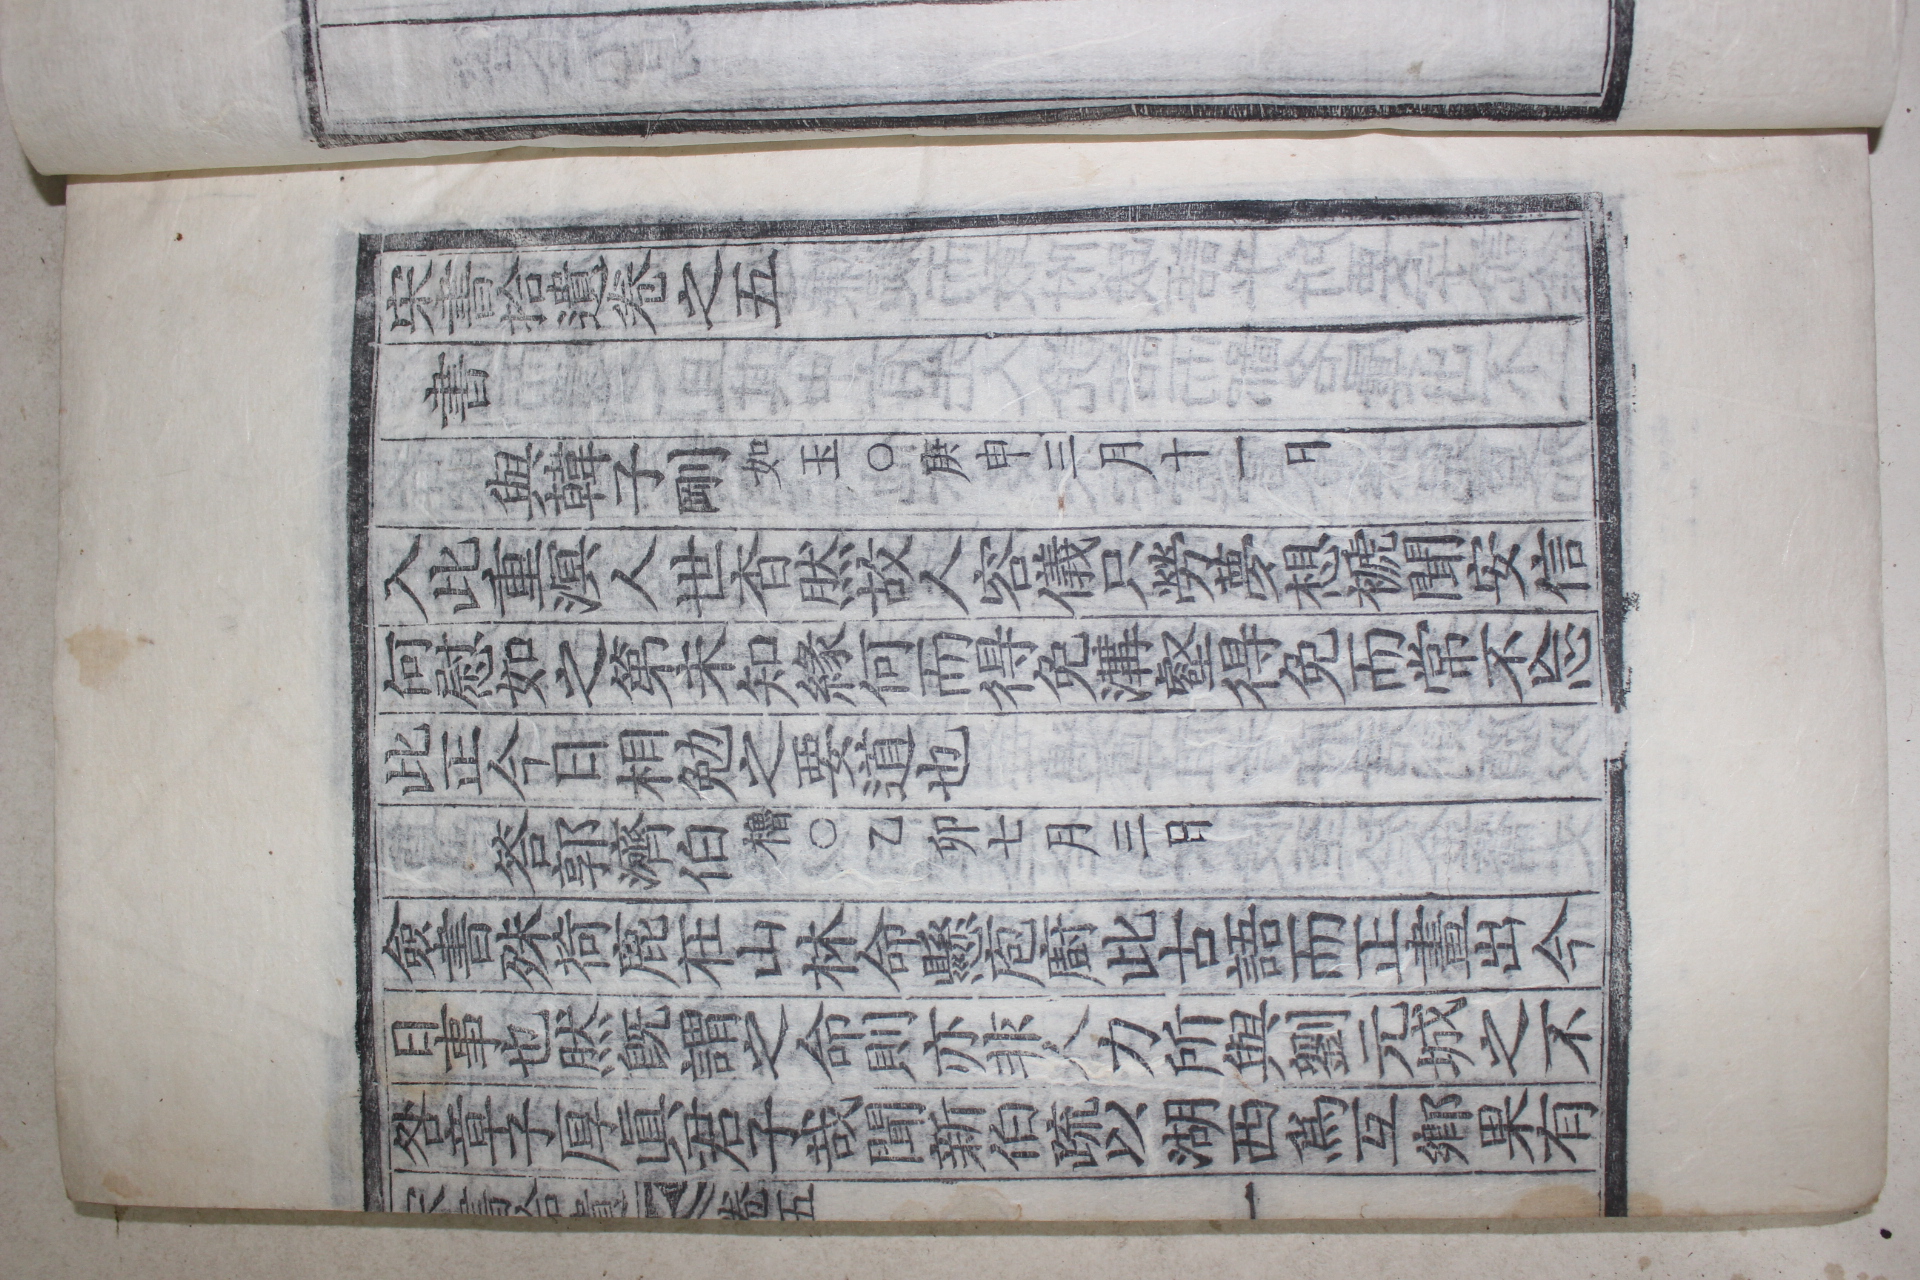 宋書拾遺卷之五
書
與韓子剛如玉○庚申三月十一日
入此重溟人世杳然故人容儀只勞夢想褫聞安信
何慰如之第未知緣何而得免溝壑得免而常不忘
此正今日相勉之要道也
答郭濟伯櫓○乙卯七月三日
僉書殊荷鹿在山林命懸庖廚此古語而正畫出今
日事也然旣謂之命則亦非人力所與劉元城之不
咎章子厚眞君子哉聞新伯疏以湖西爲互鄕果有
宋書拾遺 卷五 一